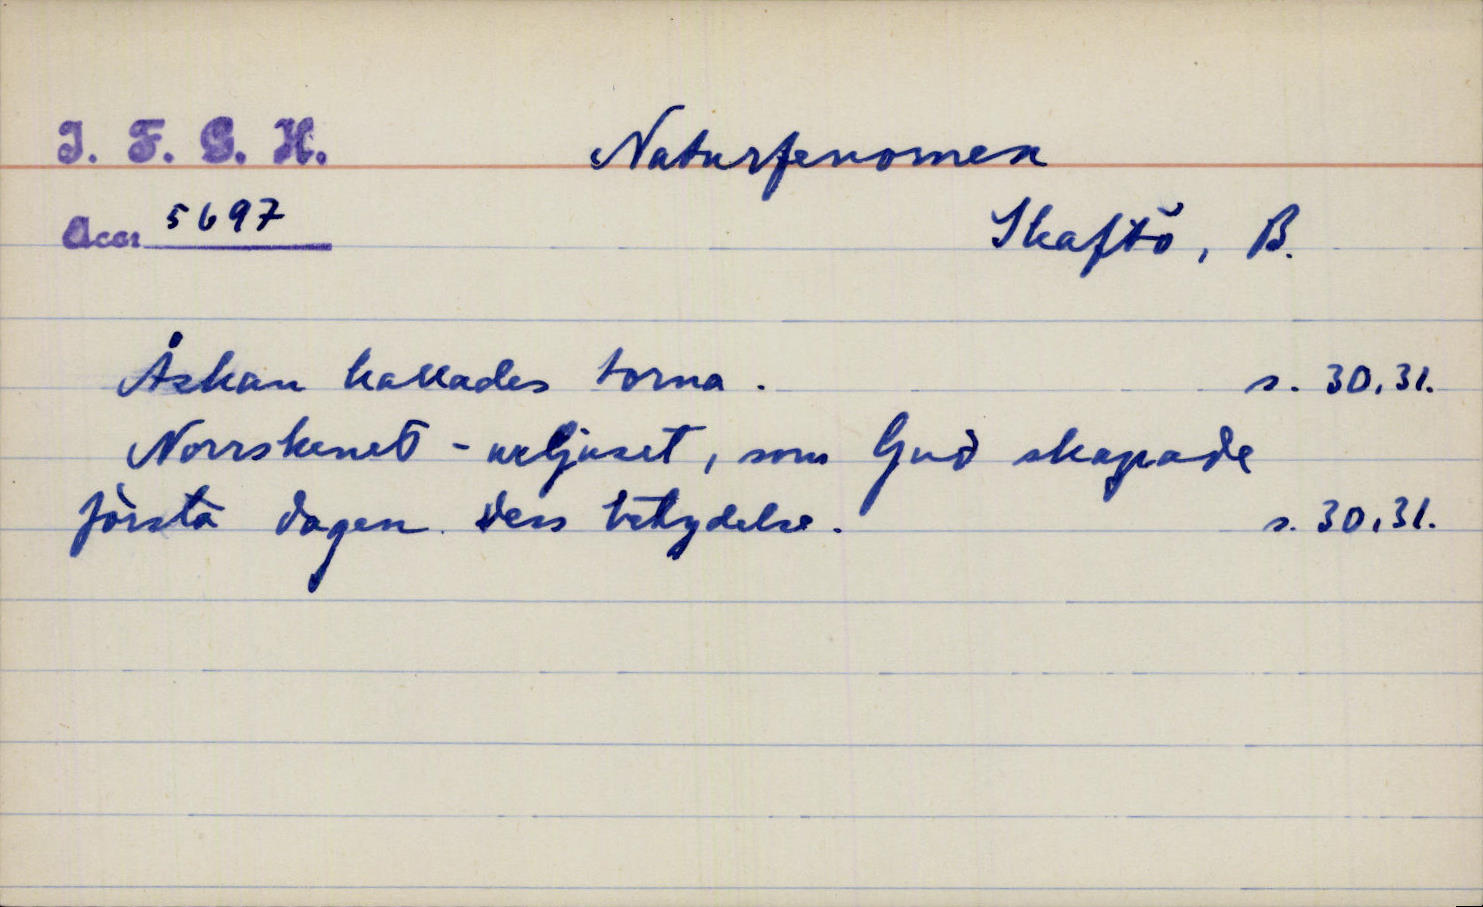 I. F. G. H.
Naturfenomen
Acc: 5697
Skaftö, B.
Åskan kallades torna. s. 30, 31.
Norrskenet - urljuset, som Gud skapade
första dagen. Dess betydelse. s. 30, 31.